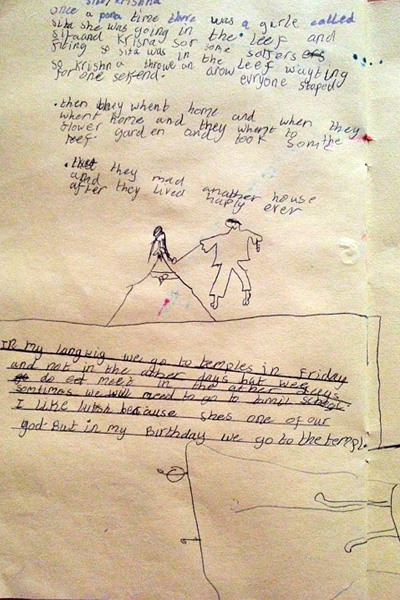 Sita/Krishna
once a pona time there was a gurle called
sita she was going in the leef and
sita and Krishna sor the some solfers
fiting so sita was in the leef wayting
so Krishna throwe an arow evryone stoped
for one sekend.
• then they whent home and
whent home and they whent to when they
flower garden and took som the
leef
• they mad another house
and
after they lived haply ever
In my langwig we go to temples in Friday
and not in the other days but wee
do eat meet in the other days
somtimes we will need to go to tamil school
I like luksh because shes one of our
god But in my Birthday we go to the templ.